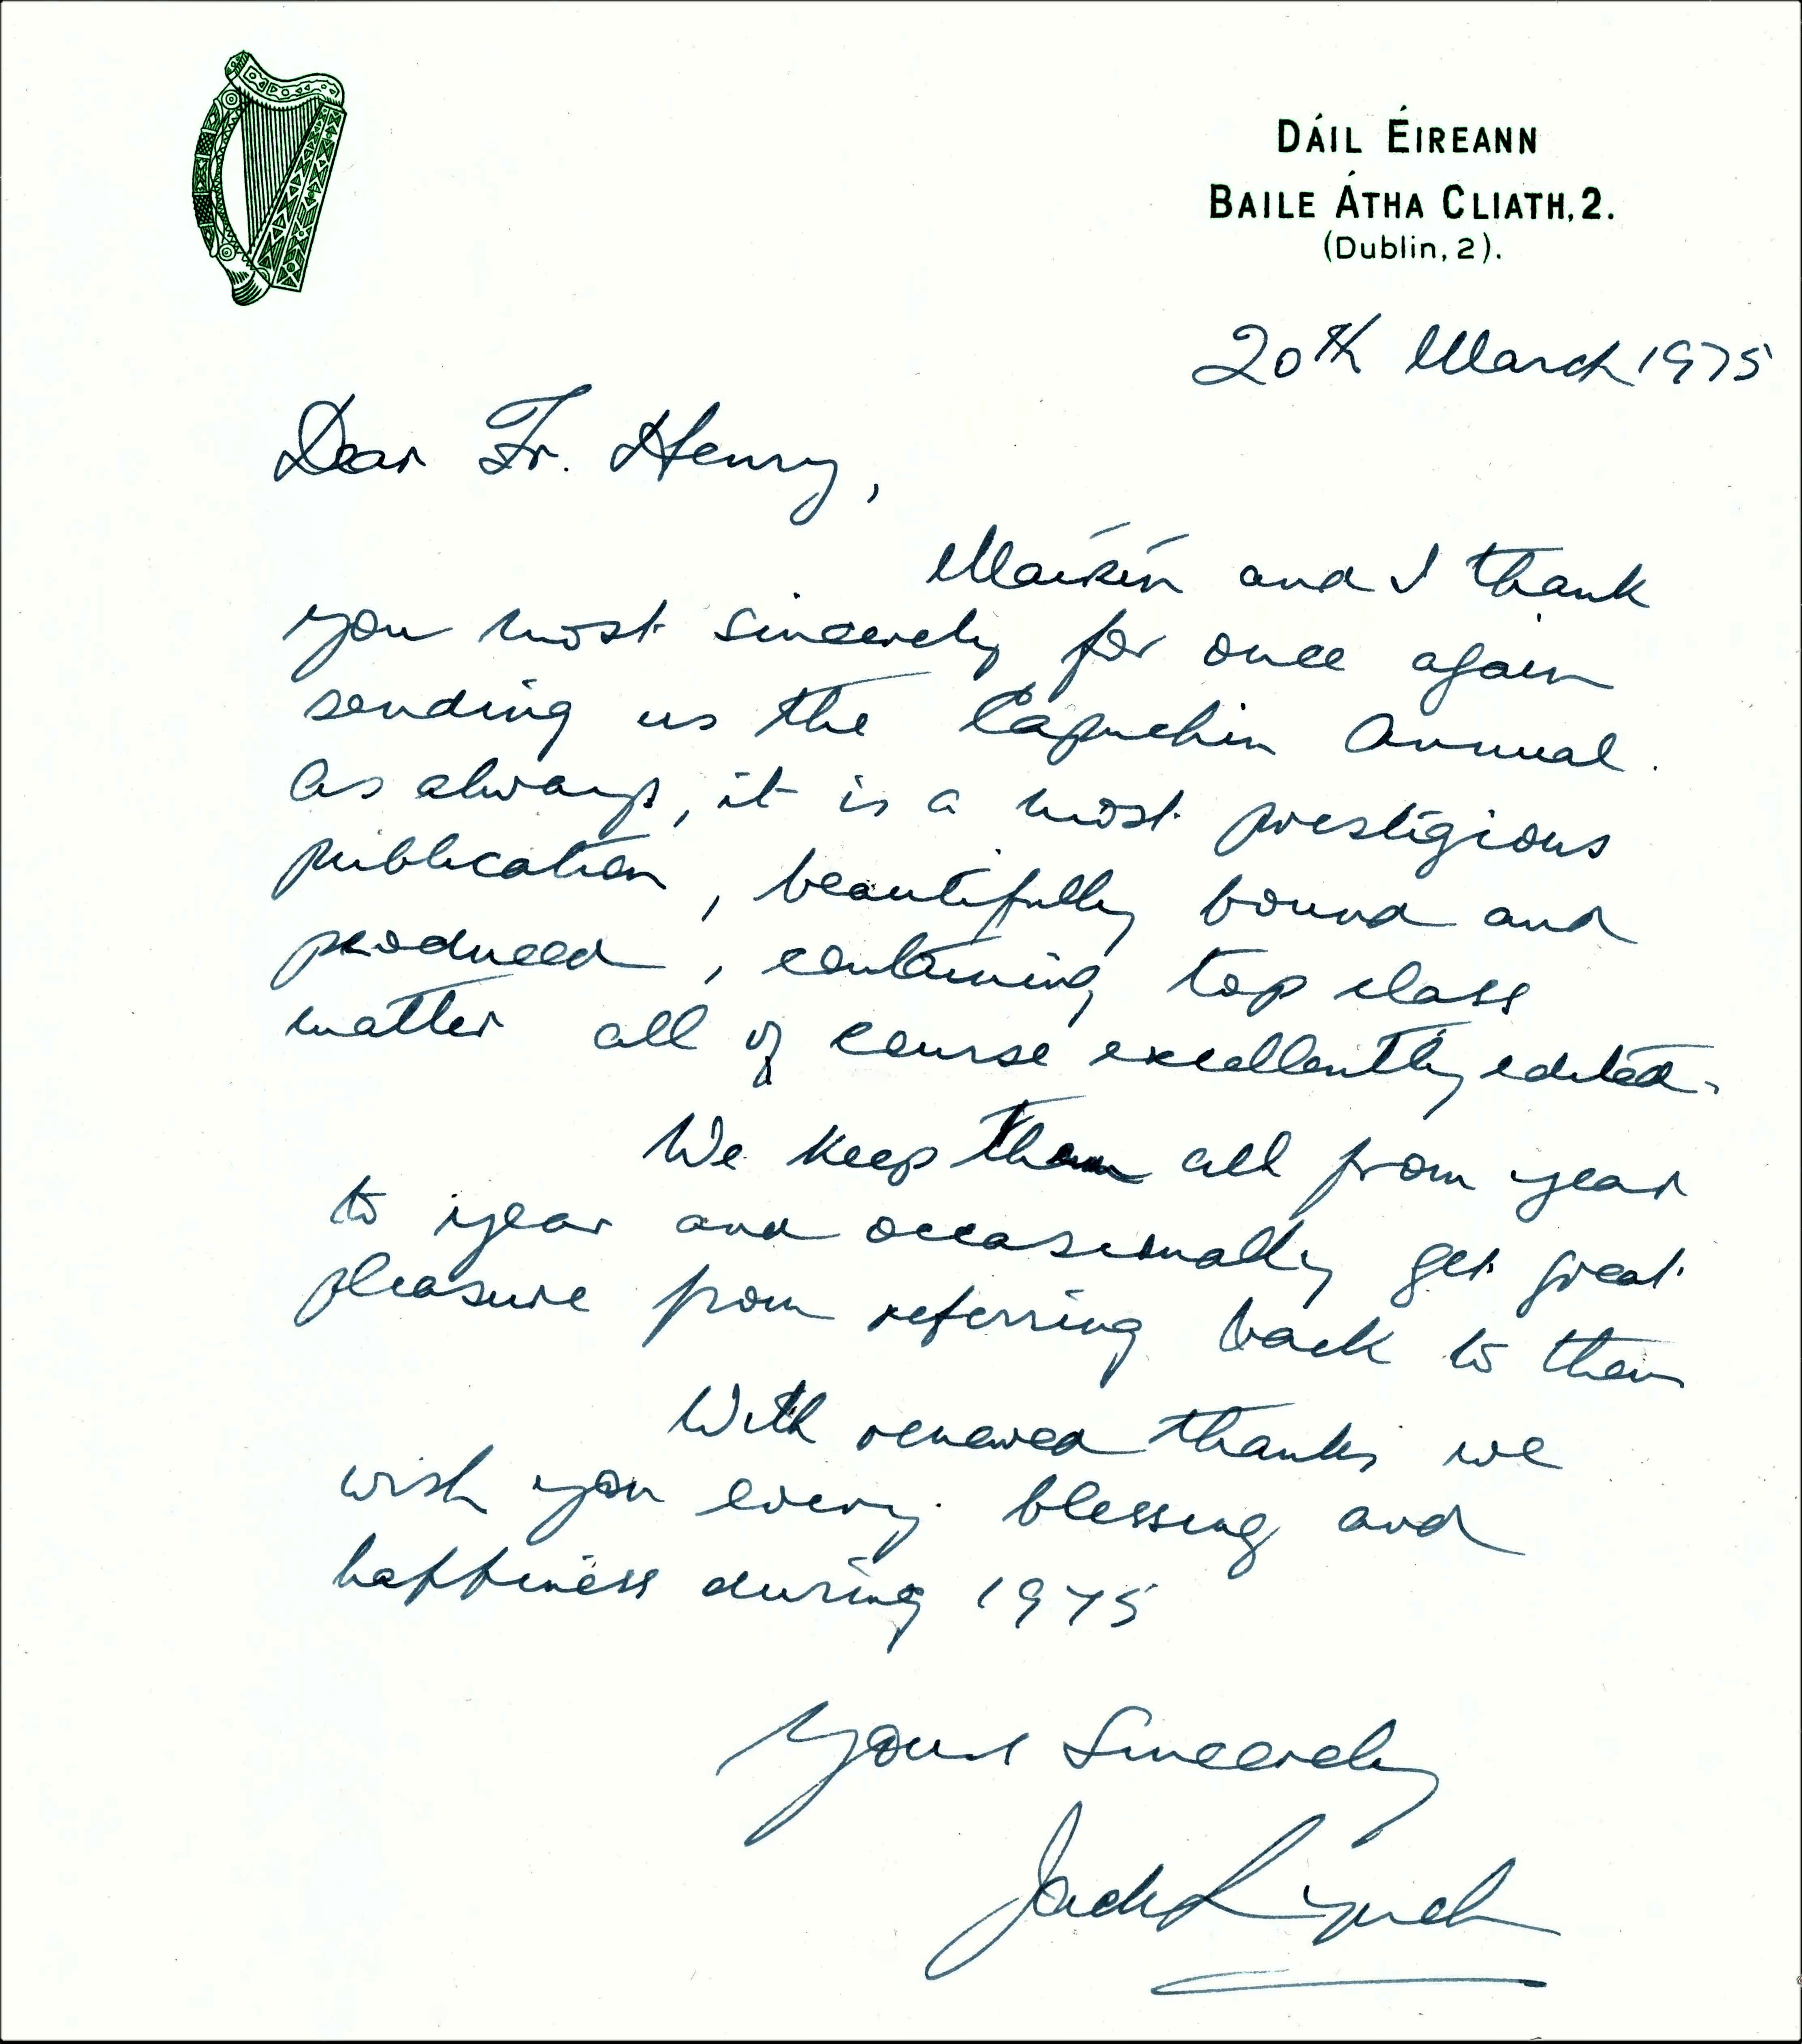 DÁIL ÉIREANN
BAILE ÁTHA CLIATH, 2.
(Dublin, 2).
20th March 1975
Dear Fr. Henry,
Máirín and I thank
you most sincerely for once again
sending us the Capuchin Annual.
As always, it is a most prestigious
publication, beautifully bound and
produced, containing top class
matter all of course excellently edited.
We keep them all from year
to year and occasionally get great
pleasure from referring back to them
With renewed thanks we
wish you every blessing and
happiness during 1975
Yours Sincerely
Jack Lynch